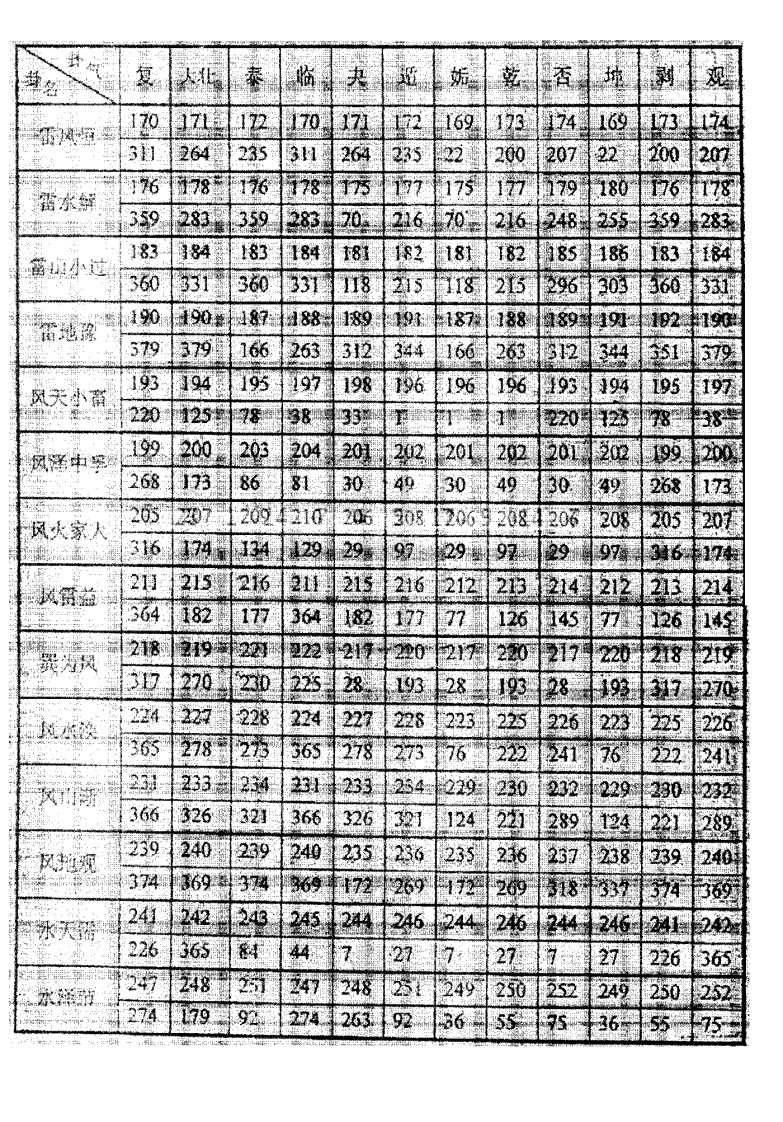 卦气
卦名 复 大壮 泰 临 夬 遁 姤 乾 否 坤 剥 观
雷风恒 170 171 172 170 171 172 169 173 174 169 173 174
311 264 235 311 264 235 22 200 207 22 200 207
雷水解 176 178 176 178 175 177 175 177 179 180 176 178
359 283 359 283 70 216 70 216 248 255 359 283
雷山小过 183 184 183 184 181 182 181 182 185 186 183 184
360 331 360 331 118 215 118 215 296 303 360 331
雷地豫 190 190 187 188 189 191 187 188 189 191 192 190
379 379 166 263 312 344 166 263 312 344 351 379
风天小畜 193 194 195 197 198 196 196 196 193 194 195 197
220 125 78 38 33 1 1 1 220 125 78 38
风泽中孚 199 200 203 204 201 202 201 202 201 202 199 200
268 173 86 81 30 49 30 49 30 49 268 173
风火家人 205 207 209 210 206 208 206 208 206 208 205 207
316 174 134 129 29 97 29 97 29 97 316 174
风雷益 211 215 216 211 215 216 212 213 214 212 213 214
364 182 177 364 182 177 77 126 145 77 126 145
巽为风 218 219 221 222 217 220 217 220 217 220 218 219
317 270 230 225 28 193 28 193 28 193 317 270
风水涣 224 227 228 224 227 228 223 225 226 223 225 226
365 278 273 365 278 273 76 222 241 76 222 241
风山渐 231 233 234 231 233 234 229 230 232 229 230 232
366 326 321 366 326 321 124 221 289 124 221 289
风地观 239 240 239 240 235 236 235 236 237 238 239 240
374 369 374 369 172 269 172 269 318 337 374 369
水天需 241 242 243 245 244 246 244 246 244 246 241 242
226 365 84 44 7 27 7 27 7 27 226 365
水泽节 247 248 251 247 248 251 249 250 252 249 250 252
274 179 92 274 263 92 36 55 75 36 55 75